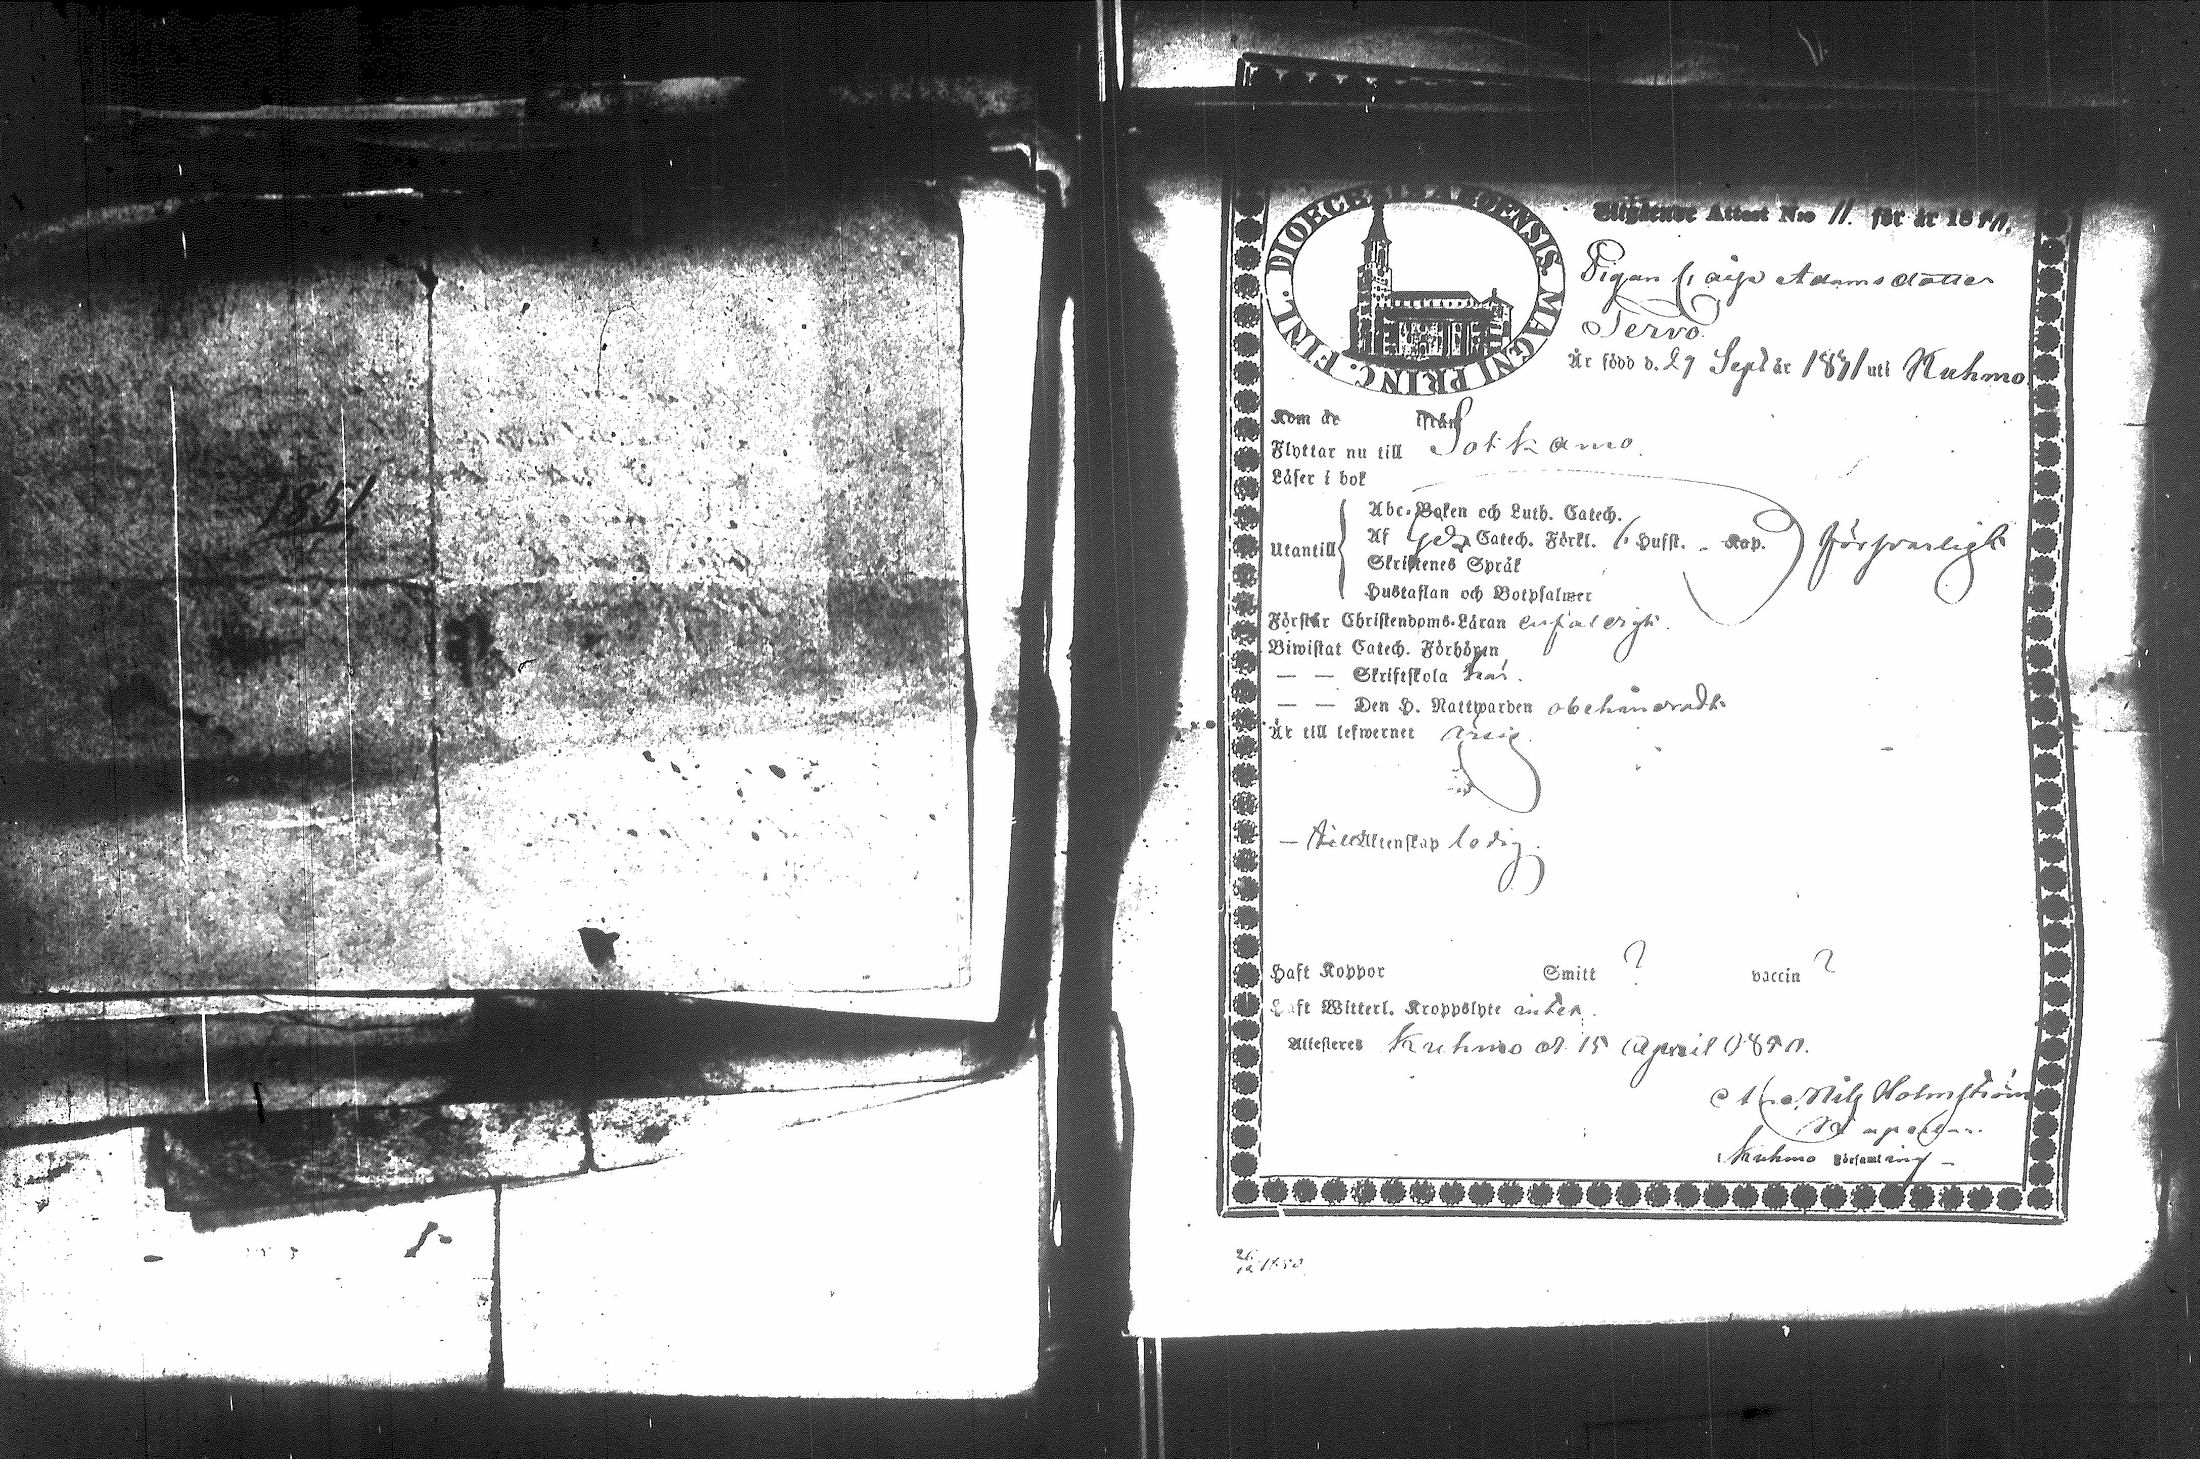 1851.
DIOECES. ABOENSIS. MAGNI PRINC. FINL.
Utgående Attest N:ro 11. för år 18
Pigan Caisa Adamsdotter
Tervo.
Är född d. 27 Sept år uti Kuhmo
Kom år ifrån
Flyttar nu till Sotkamo.
Läser i bok
Abc-Boken och Luth. Catech.
Utantill Af Catech. Förkl. Hufst. Kap. försvarligt
Skriftenes Språk
Hustaflan och Botpsalmer
Förstår Christendoms-Läran enfaldigt.
Biwistat Catech. Förhören
— — Skriftskola här.
— — Den H. Nattwarden obehindradt
Är till lefwernet
— Till Äktenskap ledig.
Haft Koppor Smitt ? vaccin ?
Haft Witterl. Kroppslyte intet.
Attesteras Kuhmo d. 15 April 1850.
Nils Holmström
Kuhmo Församling –